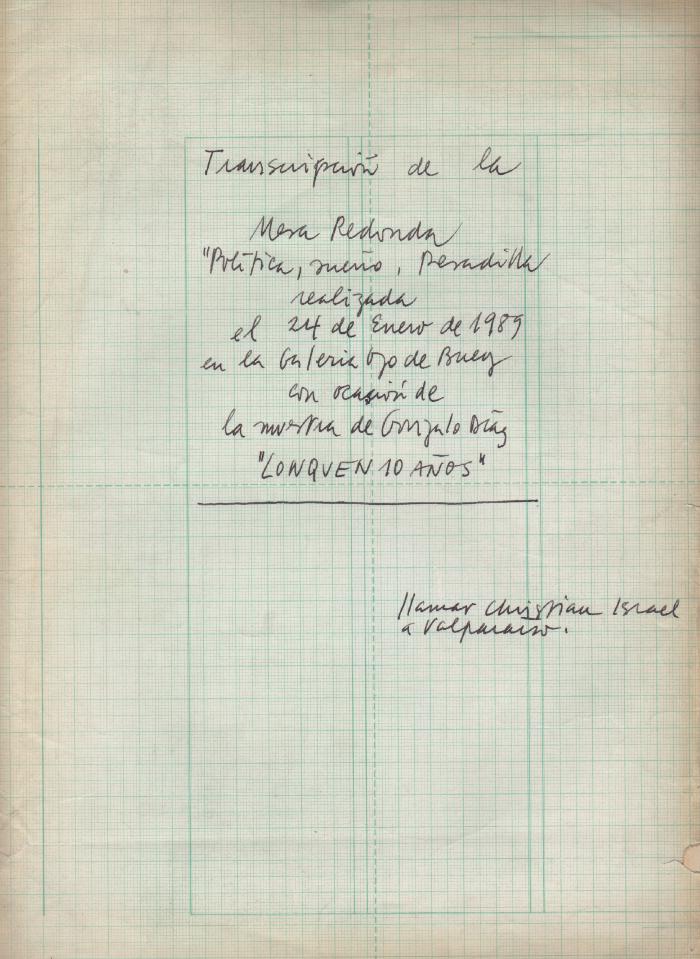 Transcripción de la
Mesa Redonda
"Política, sueño, Pesadilla
realizada
el 24 de Enero de 1989
en la Galeria Ojo de Buey
con ocasión de
la muestra de Gonzalo Díaz
"LONQUEN 10 AÑOS"
llamar Christian Israel
a Valparaíso.